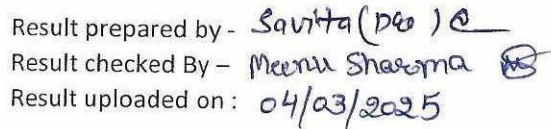 Result prepared by - Savita (Deo)
Result checked By – Meenu Sharma
Result uploaded on : 04/03/2025